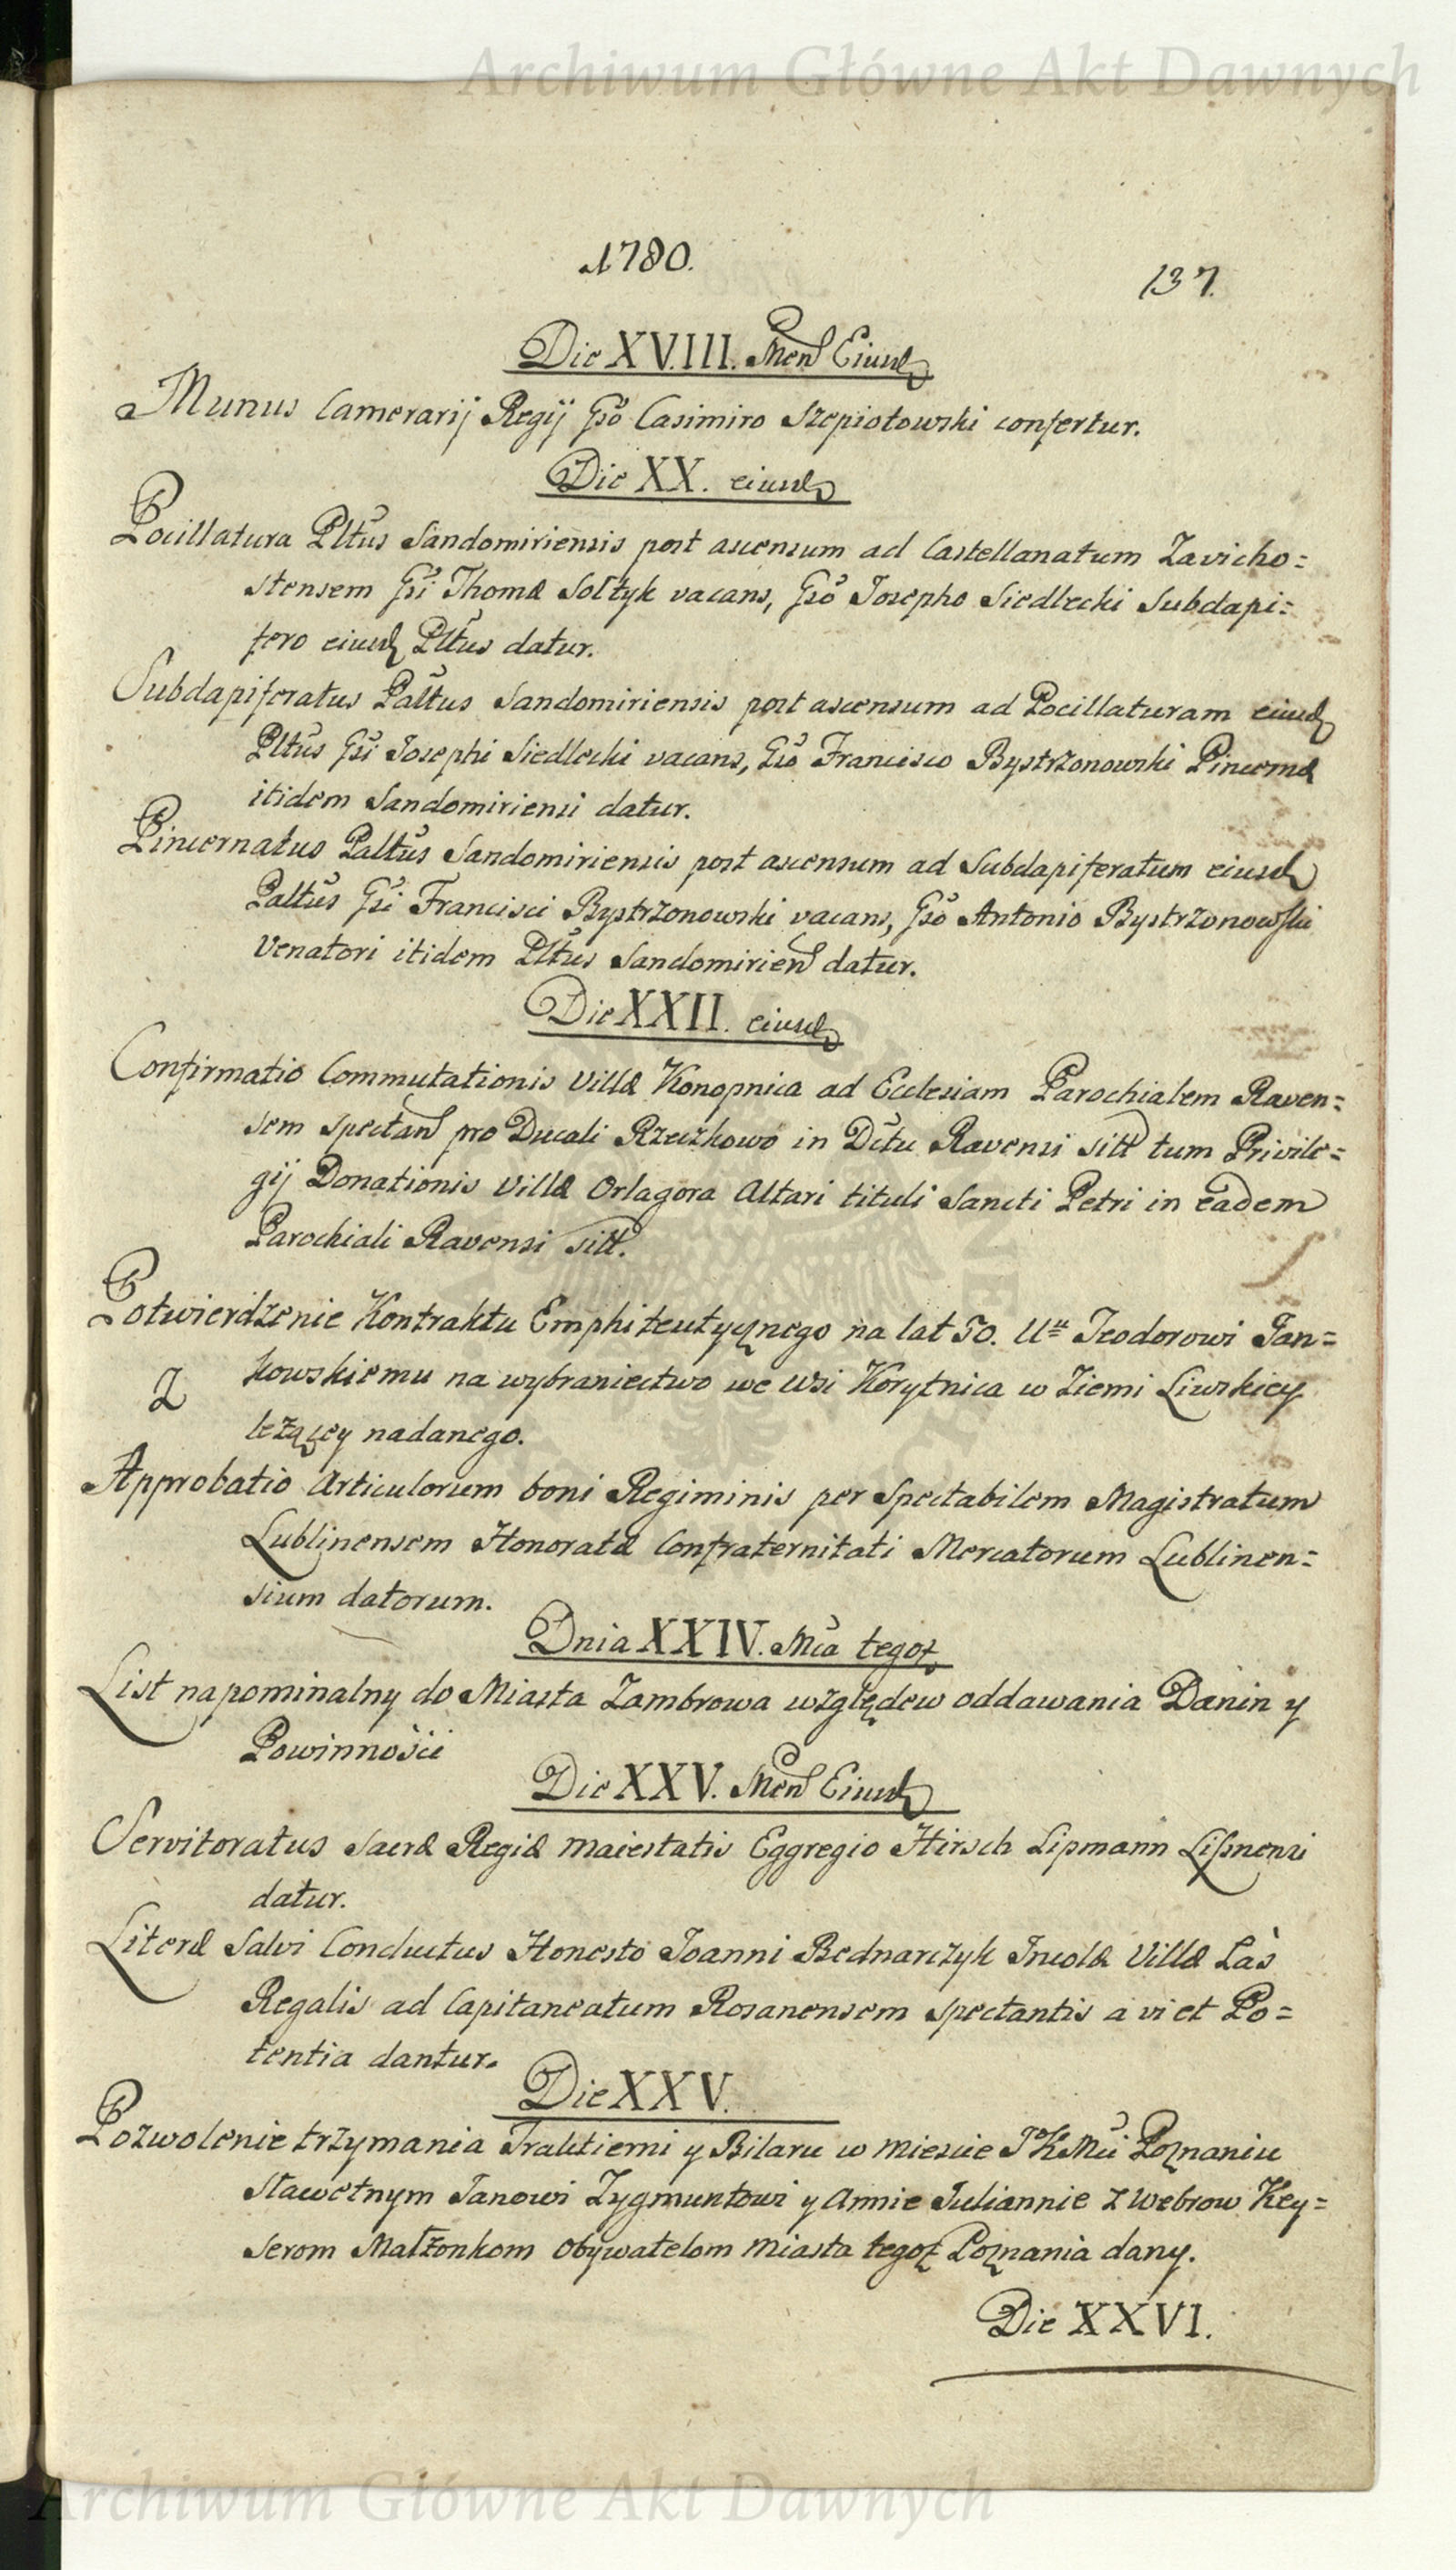 Archiwum Główne Akt Dawnych
1780.
137.
Die XVIII. Men Eiusd
Munus Camerarij Regij Gso Casimiro Szepiotowski confertur.
Die XX. eiusd
Pocillatura Pltus Sandomiriensis post ascensum ad Castellanatum Zavicho=
stensem Gsi Thomæ Sołtyk vacans, Gso Josepho Siedlecki Subdapi=
fero eiusd Pltus datur.
Subdapiferatus Paltus Sandomiriensis post ascensum ad Pocillaturam eiusd
Pltus Gsi Josephi Siedlecki vacans, Gso Francisco Bystrzonowski Pincernæ
itidem Sandomiriensi datur.
Pincernatus Paltus Sandomiriensis post ascensum ad Subdapiferatum eiusd
Paltus Gsi Francisci Bystrzonowski vacans, Gso Antonio Bystrzonowski
Venatori itidem Pltus Sandomirien datur.
Die XXII. eiusd
Confirmatio Commutationis Villæ Konopnica ad Ecclesiam Parochialem Raven=
sem spectan pro Ducali Rzeczkowo in Dctu Ravensi sitt tum Privile=
gij Donationis Villæ Orlagora Altari tituli Sancti Petri in eadem
Parochiali Ravensi sitt.
Potwierdzenie Kontraktu Emphiteutycznego na lat 50. Ur Teodorowi Jan=
Z kowskiemu na wybraniectwo we Wsi Korytnica w Ziemi Liwskiey
leżącey nadanego.
Approbatio Articulorum boni Regiminis per Spectabilem Magistratum
Lublinensem Honoratæ Confraternitati Mercatorum Lublinen=
sium datorum.
Dnia XXIV. Mca tegoż
List napominalny do Miasta Zambrowa względew oddawania Danin y
Powinności
Die XXV. Men Eiusd
Servitoratus Sacræ Regiæ Maiestatis Eggregio Hirsch Lipmann Lissnensi
datur.
Literæ Salvi Conductus Honesto Joanni Bednarczyk Incolæ Villæ Las
Regalis ad Capitaneatum Rosanensem spectantis a vi et Po=
tentia dantur.
Die XXV.
Pozwolenie trzymania Traktierni y Bilaru w Mieście JKMci Poznaniu
Sławetnym Janowi Zygmuntowi y Annie Juliannie z Webrow Key=
serom Małżonkom Obywatelom Miasta tegoż Poznania dany.
Die XXVI.
Archiwum Główne Akt Dawnych